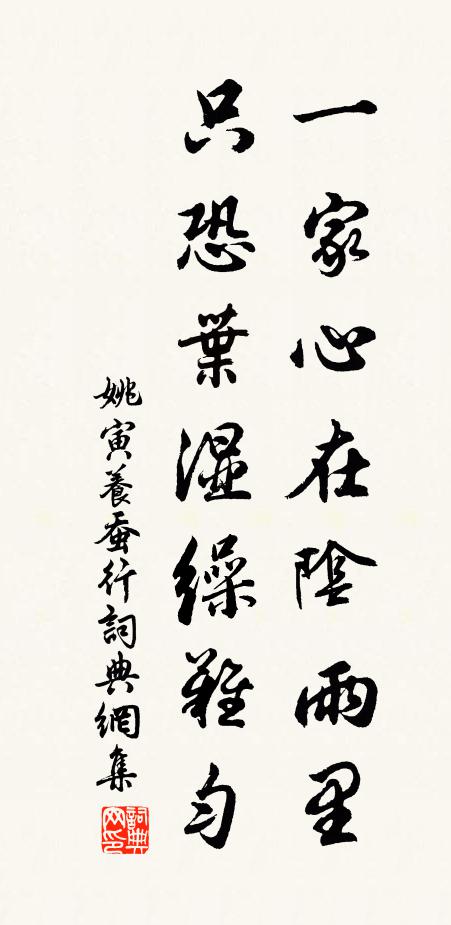 一家心在陰雨里
只恐葉湿繰難匀
姚寅養蚕行詞典網集
詞典网印